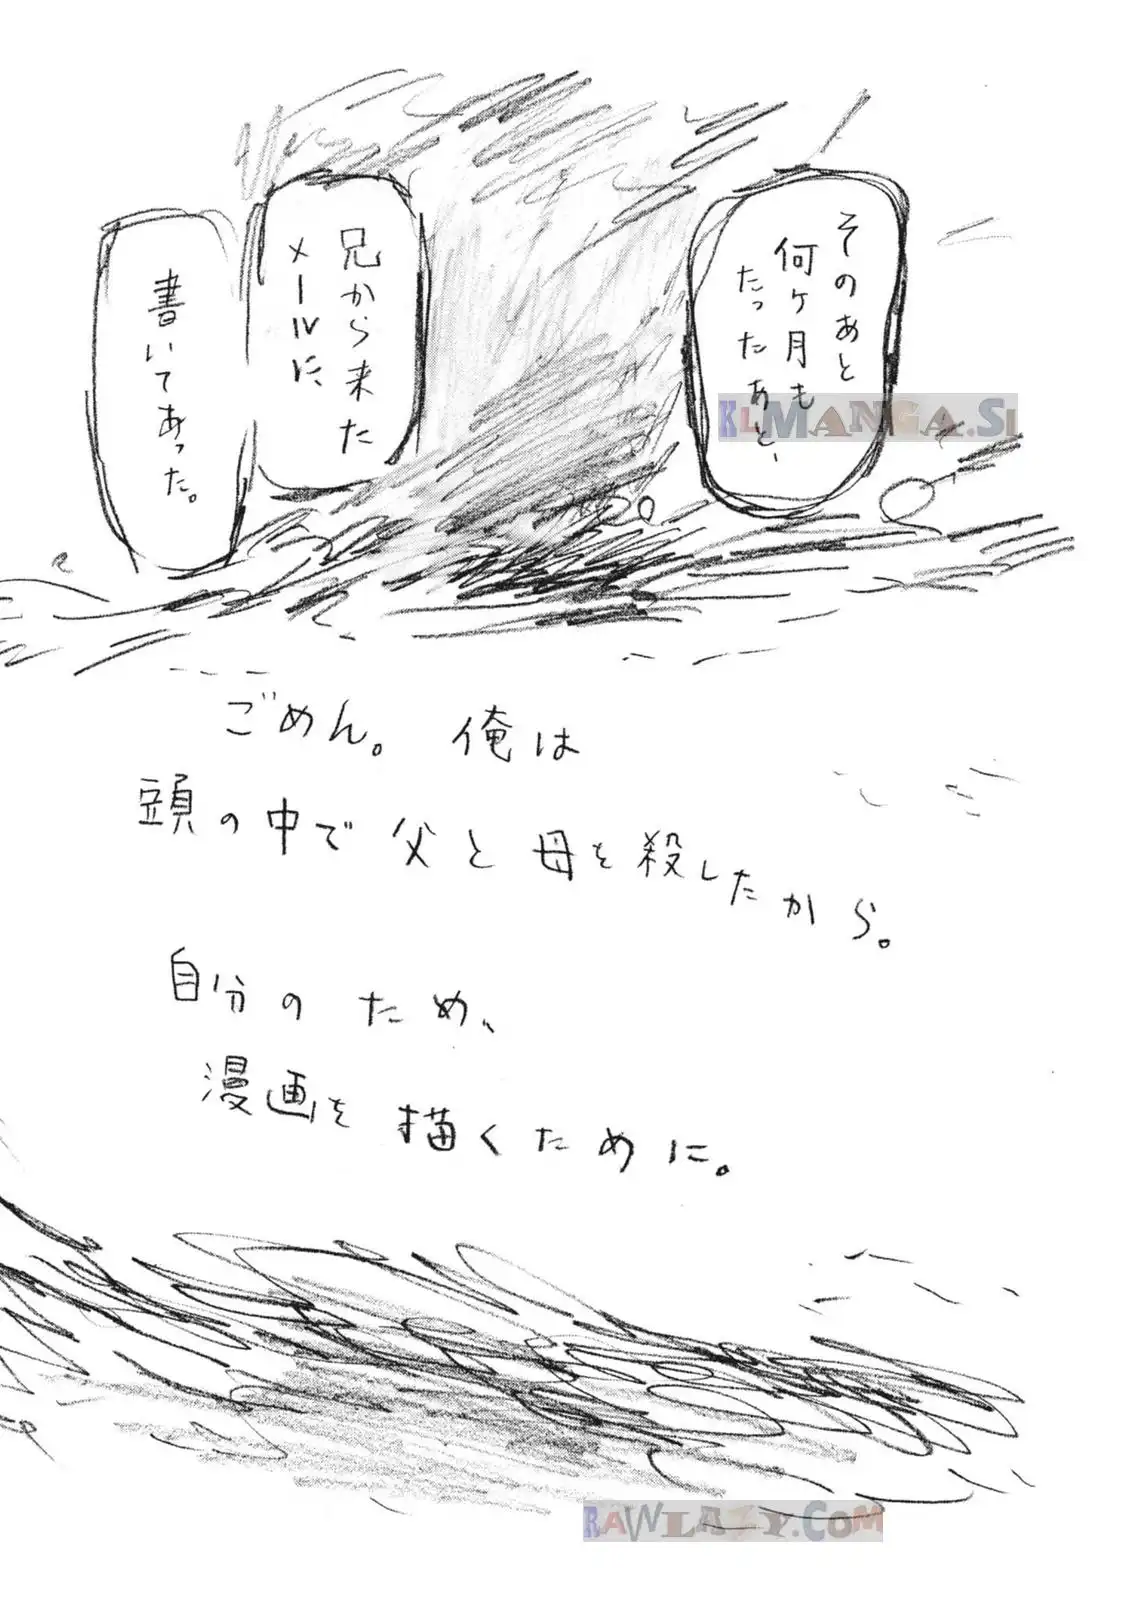 そのあと
何ヶ月も
たったあと、
兄から来た
メールに、
書いてあった。
KLMANGA.SI
ごめん。俺は
頭の中で父と母を殺したから。
自分のため、
漫画を描くために。
RAWLAZY.COM